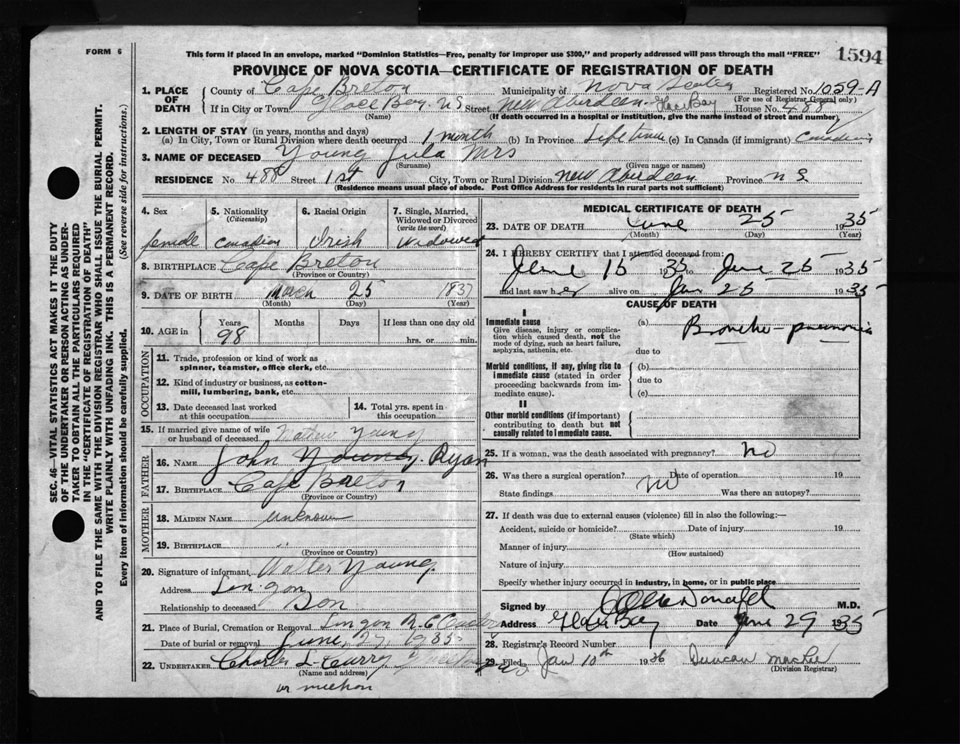 FORM 6
This form if placed in an envelope, marked "Dominion Statistics—Free, penalty for improper use $300," and properly addressed will pass through the mail "FREE"
1594
PROVINCE OF NOVA SCOTIA—CERTIFICATE OF REGISTRATION OF DEATH
SEC. 46—VITAL STATISTICS ACT MAKES IT THE DUTY
OF THE UNDERTAKER OR PERSON ACTING AS UNDER-
TAKER TO OBTAIN ALL THE PARTICULARS REQUIRED
IN THE "CERTIFICATE OF REGISTRATION OF DEATH"
AND TO FILE THE SAME WITH THE DIVISION REGISTRAR WHO SHALL ISSUE THE BURIAL PERMIT.
WRITE PLAINLY WITH UNFADING INK. THIS IS A PERMANENT RECORD.
Every item of information should be carefully supplied. (See reverse side for instructions.)
1. PLACE OF DEATH
County of Cape Breton Municipality of Nova Scotia Registered No. 1059-A
(For use of Registrar General only)
If in City or Town Glace Bay, NS Street New Aberdeen Glace Bay House No. 488
(Name) (If death occurred in a hospital or institution, give the name instead of street and number)
2. LENGTH OF STAY (in years, months and days)
(a) In City, Town or Rural Division where death occurred 1 month (b) In Province Life time (c) In Canada (if immigrant) Canadian
3. NAME OF DECEASED Young Jula Mrs
(Surname) (Given name or names)
RESIDENCE No. 488 Street 1st City, Town or Rural Division New Aberdeen Province N S
(Residence means usual place of abode. Post Office Address for residents in rural parts not sufficient)
4. Sex female
5. Nationality (Citizenship) Canadian
6. Racial Origin Irish
7. Single, Married, Widowed or Divorced (write the word) Widowed
8. BIRTHPLACE Cape Breton
(Province or Country)
9. DATE OF BIRTH Mach 25 1837
(Month) (Day) (Year)
10. AGE in Years 98 Months Days If less than one day old hrs. or min.
OCCUPATION
11. Trade, profession or kind of work as spinner, teamster, office clerk, etc.
12. Kind of industry or business, as cotton-mill, lumbering, bank, etc.
13. Date deceased last worked at this occupation
14. Total yrs. spent in this occupation
15. If married give name of wife or husband of deceased Young
FATHER
16. NAME John Young Ryan
17. BIRTHPLACE Cape Breton
(Province or Country)
MOTHER
18. MAIDEN NAME unknown
19. BIRTHPLACE "
(Province or Country)
20. Signature of informant Walter Young
Address Lingan
Relationship to deceased Son
21. Place of Burial, Cremation or Removal Lingan R.C
Date of burial or removal June, 27, 1935
22. UNDERTAKER Charles L. Curry
(Name and address)
MEDICAL CERTIFICATE OF DEATH
23. DATE OF DEATH June 25 1935
(Month) (Day) (Year)
24. I HEREBY CERTIFY that I attended deceased from:
June 15 1935 to June 25 1935
and last saw her alive on Jun 25 1935
CAUSE OF DEATH
I
Immediate cause
Give disease, injury or complication which caused death, not the mode of dying, such as heart failure, asphyxia, asthenia, etc.
(a) Broncho-pneumonia
due to
Morbid conditions, if any, giving rise to immediate cause (stated in order proceeding backwards from immediate cause).
(b)
due to
(c)
II
Other morbid conditions (if important) contributing to death but not causally related to immediate cause.
25. If a woman, was the death associated with pregnancy? No
26. Was there a surgical operation? No Date of operation 19
State findings Was there an autopsy?
27. If death was due to external causes (violence) fill in also the following:—
Accident, suicide or homicide? Date of injury 19
(State which)
Manner of injury
(How sustained)
Nature of injury
Specify whether injury occurred in industry, in home, or in public place
Signed by M.D.
Address Glace Bay Date June 29 1935
28. Registrar's Record Number
29. Filed Jan 10th 1936 Duncan
(Division Registrar)